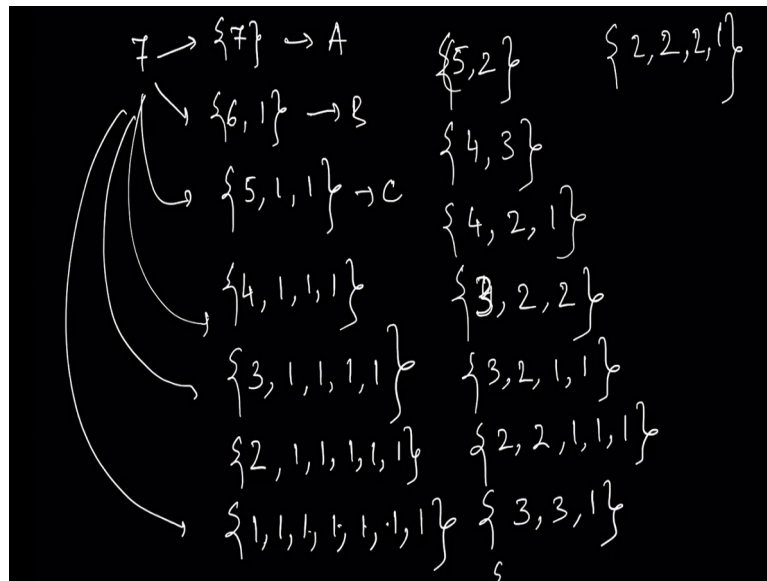 7 → {7} → A
{6, 1} → B
{5, 1, 1} → C
{4, 1, 1, 1}
{3, 1, 1, 1, 1}
{2, 1, 1, 1, 1, 1}
{1, 1, 1, 1, 1, 1, 1}
{5, 2}
{4, 3}
{4, 2, 1}
{3, 2, 2}
{3, 2, 1, 1}
{2, 2, 1, 1, 1}
{3, 3, 1}
{
{2, 2, 2, 1}